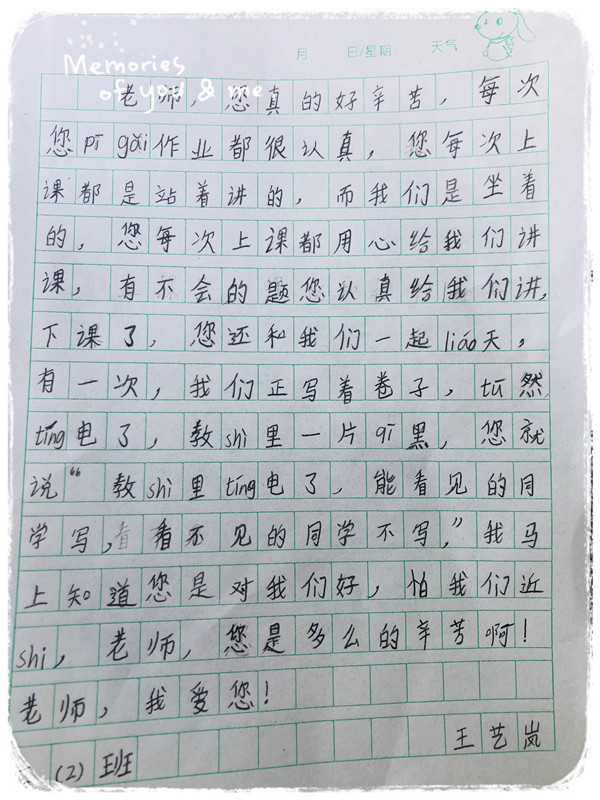 Memories
of you & me
月 日/星期 天气
老师，您真的好辛苦，每次
您pī gǎi作业都很认真，您每次上
课都是站着讲的，而我们是坐着
的，您每次上课都用心给我们讲
课，有不会的题您认真给我们讲，
下课了，您还和我们一起liáo天。
有一次，我们正写着卷子，tū然
tíng电了，教shì里一片qī黑，您就
说“教shì里tíng电了，能看见的同
学写，看看不见的同学不写，”我马
上知道您是对我们好，怕我们近
shì，老师，您是多么的辛苦啊！
老师，我爱您！
(2)班 王艺岚